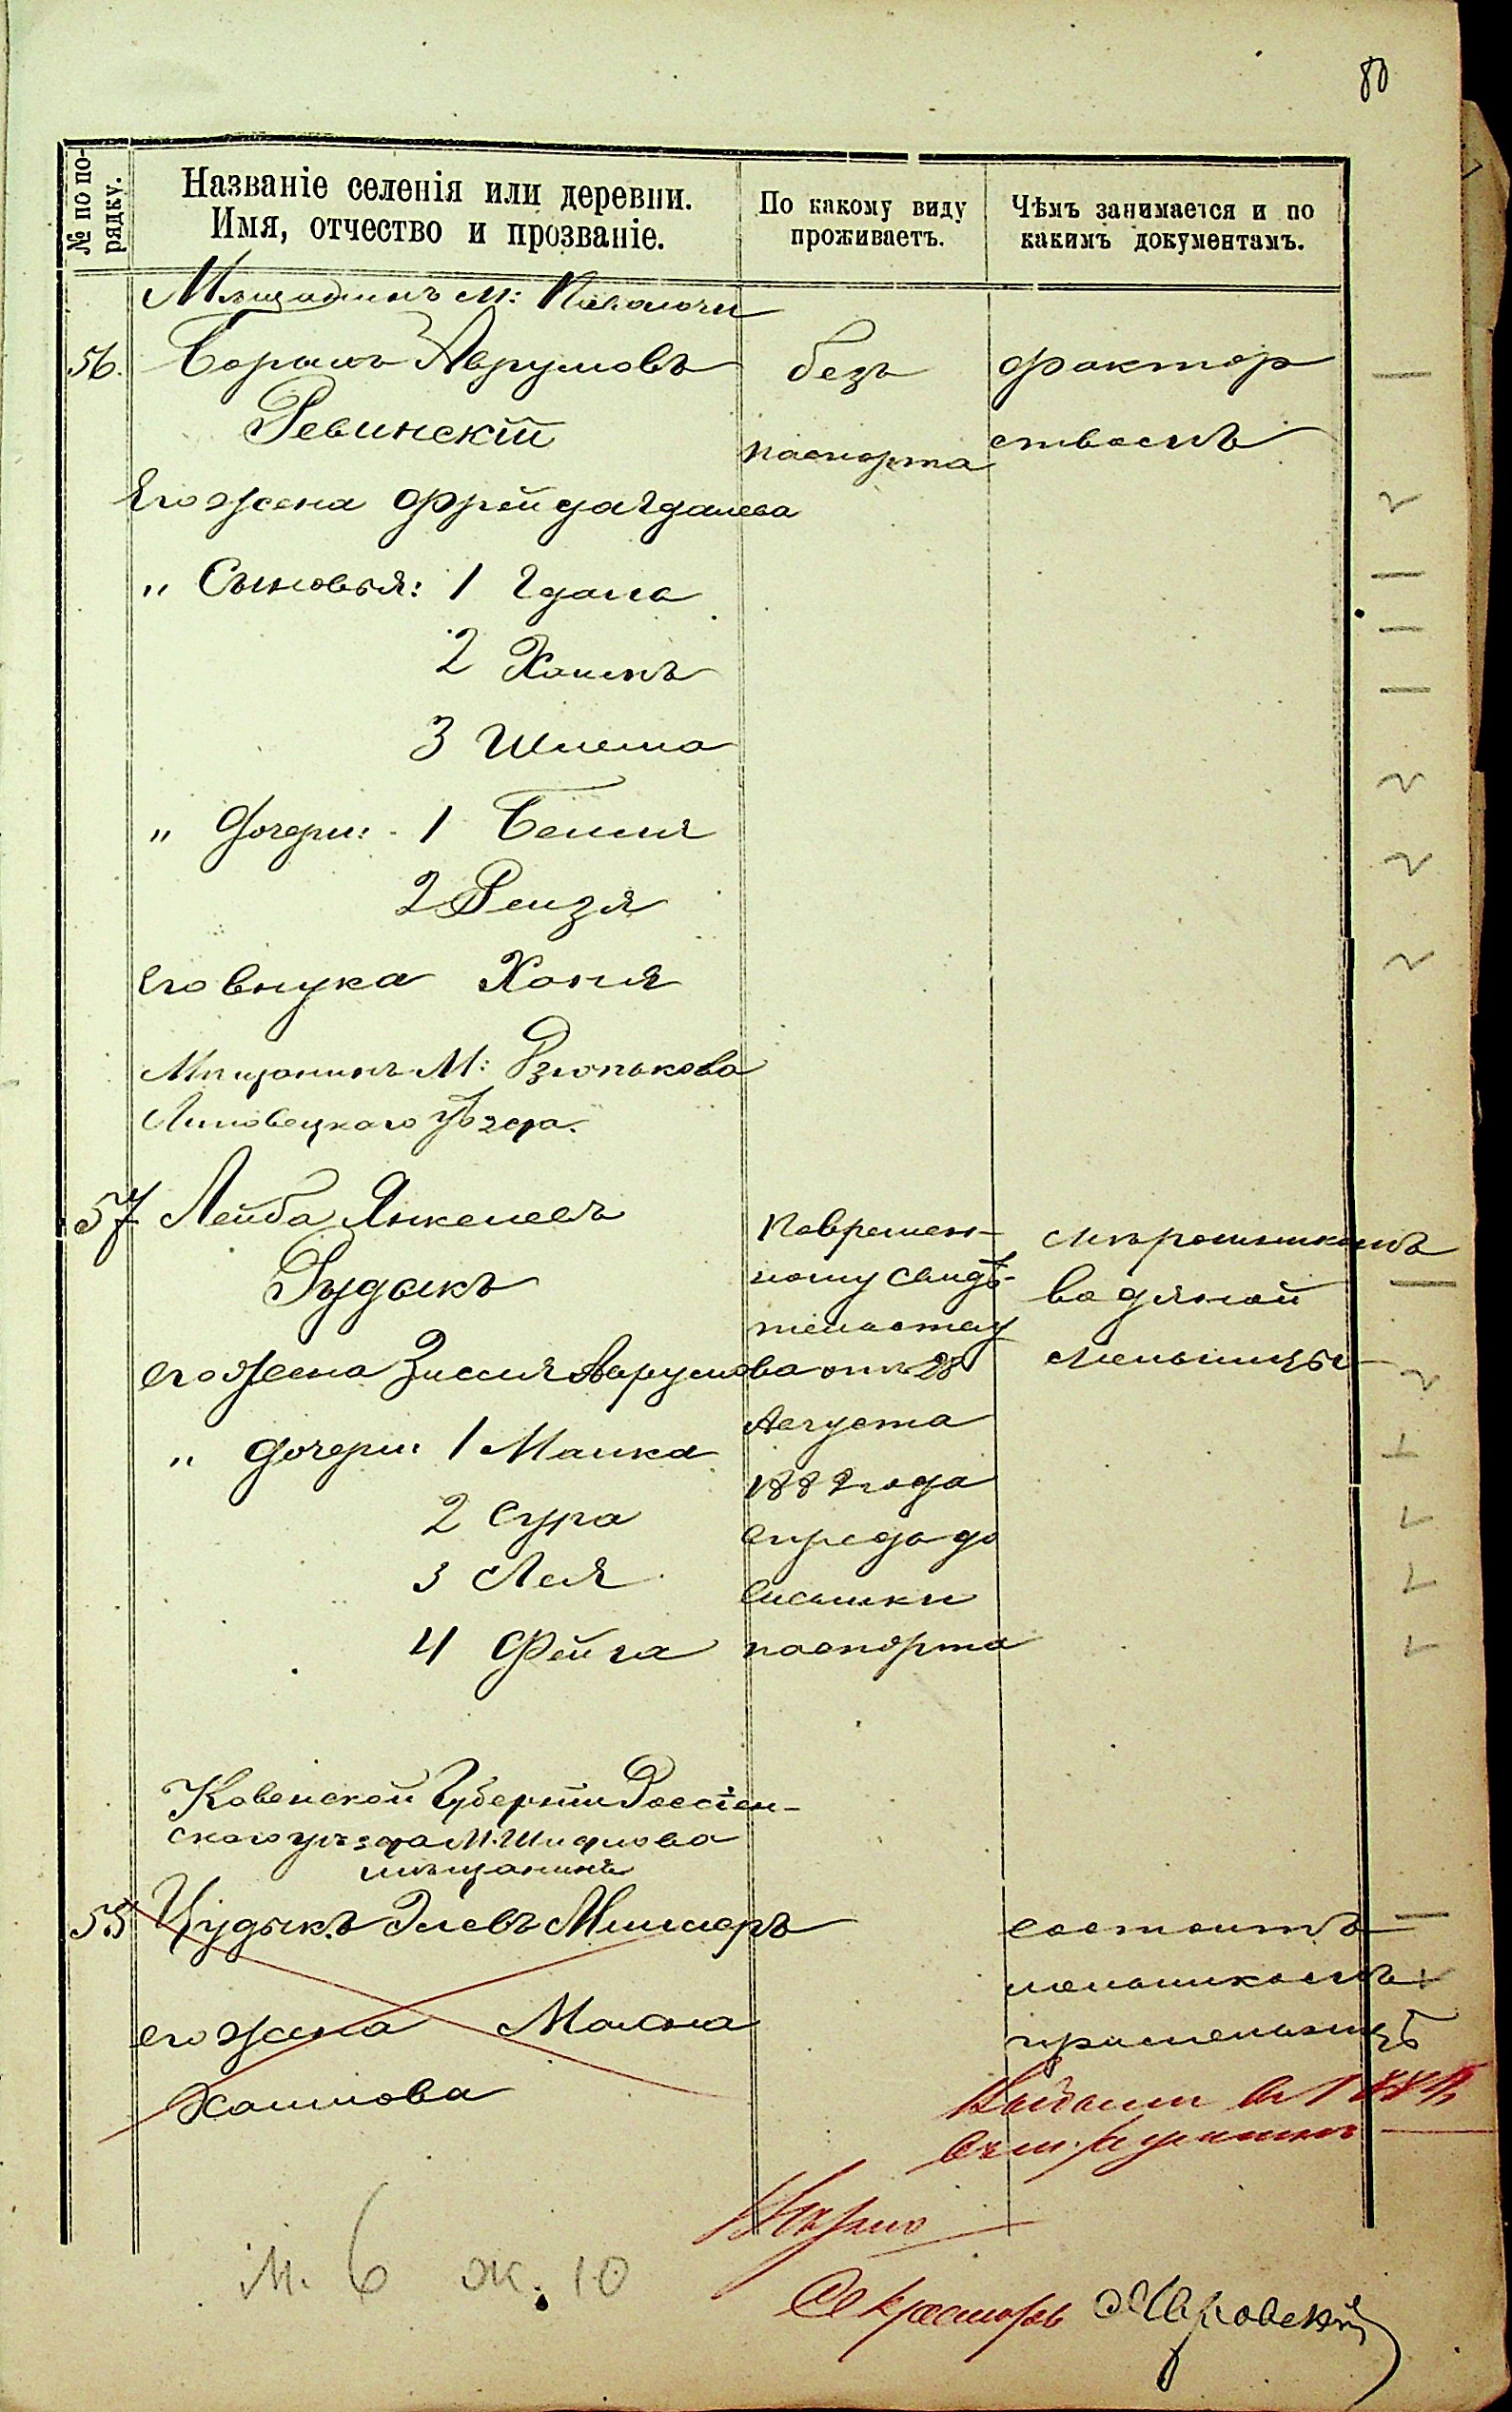 80
№ по порядку.
Названіе селенія или деревни.
Имя, отчество и прозваніе.
По какому виду
проживаетъ.
Чѣмъ занимается и по
какимъ документамъ.
Мѣщанинъ м: Паволочи
56. Борахъ Аврумовъ
Левинскій
безъ
паспорта
фактор
ствомъ
Его жена Фрейда Гдалева
" Сыновья: 1 Гдала
2 Хаимъ
3 Шлема
" Дочери: 1
2 Рейзя
его внука Ханя
Мѣщанинъ М: Дзюнькова
Липовецкаго уѣзда.
57 Лейба Янкелевъ
Гудыкъ
По времен-
ному свидѣ-
тельству
отъ 28
Августа
188 года
паспорта
водяной
мельницы
его жена Зисля Аврумова
" дочери: 1 Малка
2 Сура
3 Лея
4 Фейга
Ковенской Губерніи Россіен-
скаго уѣзда М.
мѣщанинъ
Цудыкъ Элевъ Миллеръ
состоитъ
мельникомъ
при мельницѣ
его жена
Хаимова
Вѣрно
Секретарь
м. 6 ж. 10